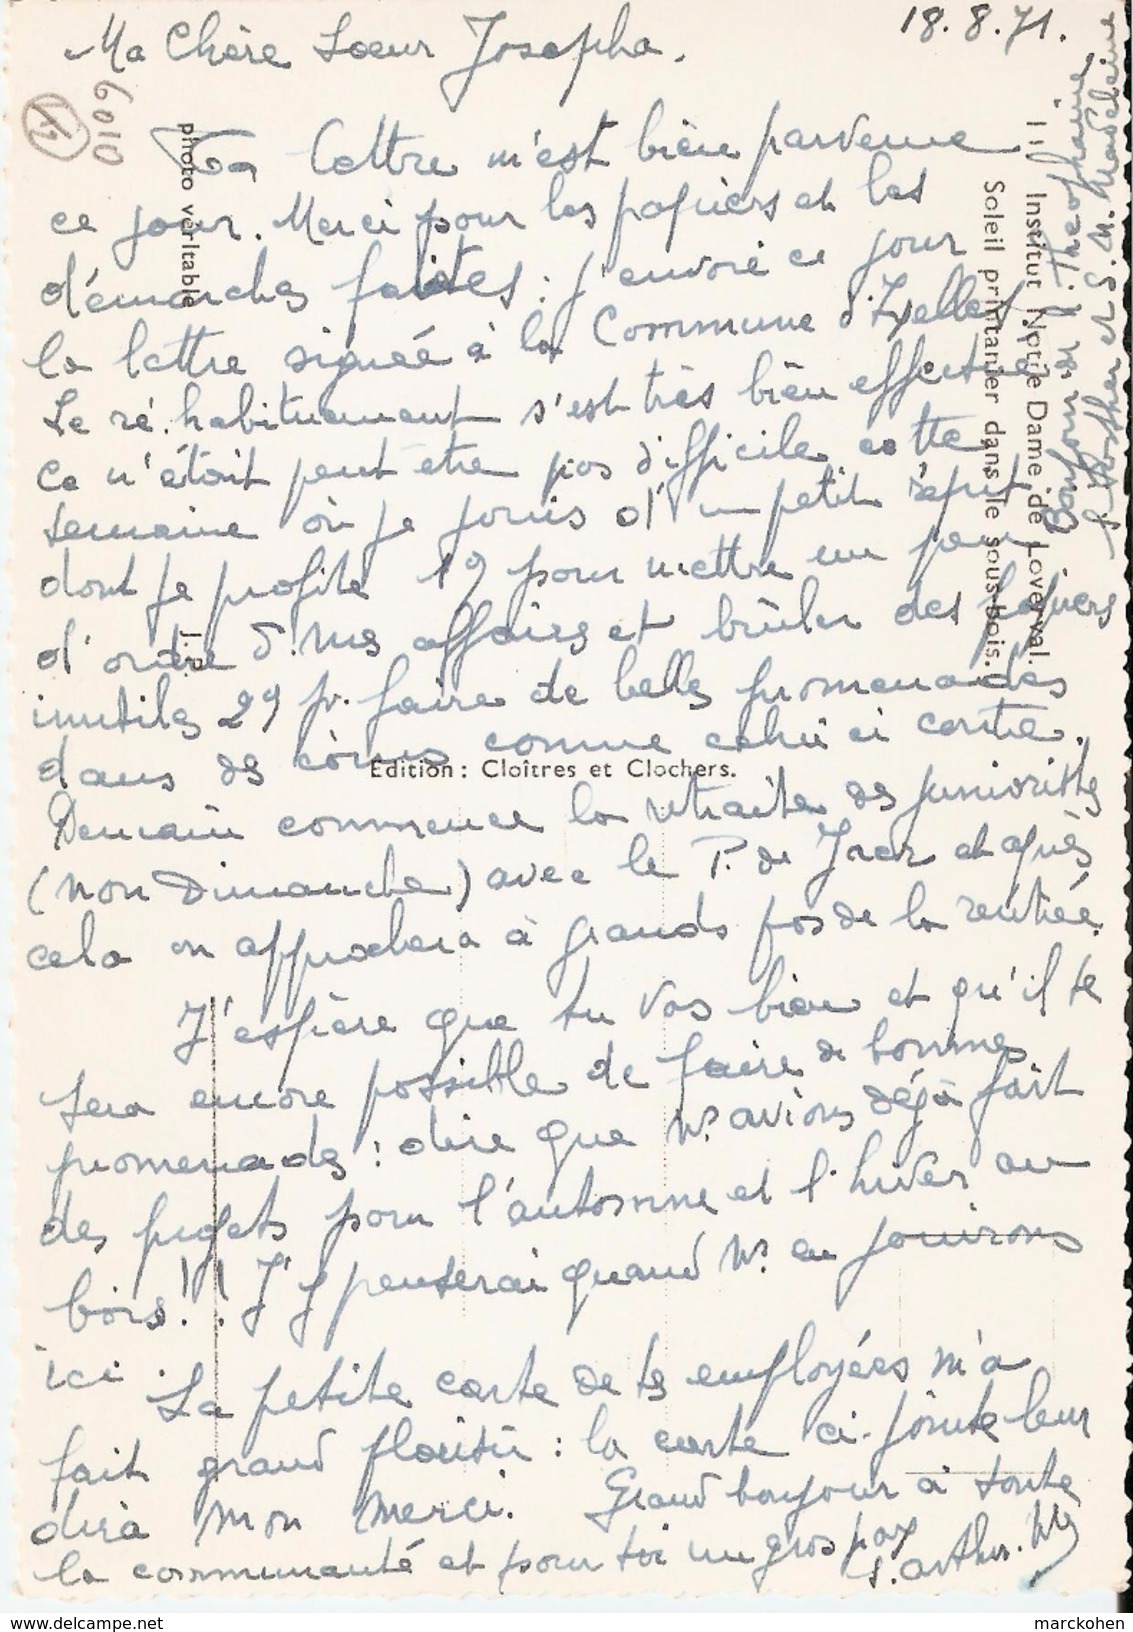 18.8.71.
Ma Chère Soeur Josepha.
Ta lettre m'est bien parvenue
ce jour. Merci pour les papiers et les
démarches faites : j'envoie ce jour
la lettre signée à la Commune d'Ixelles
Le ré.habituement s'est très bien effectué
Ce n'était peut etre pas difficile cette
semaine où je jouis d'un petit répit
dont je profite 1º pour mettre un peu
d'ordre d. mes affaires et brûler des papiers
inutiles 2º pr. faire de belles promenades
dans des coins comme celui ci contre.
Demain commence la retraite des junioristes
(non Dimanche) avec le P. de et après
cela on approchera à grands pas de la rentrée.
J'espère que tu vas bien et qu'il te
sera encore possible de faire de bonnes
promenades : dire que ns. avions déjà fait
des projets pour l'automne et l'hiver au
bois!!! J'y penserai quand ns. en jouirons
ici.
La petite carte de tes employées m'a
fait grand plaisir : la carte ci-jointe leur
dira mon merci. Grand bonjour à toute
la communauté et pour toi un gros pax
S. arthur. My
Bonjour à Theophanie
S. et S. M. Madeleine
11 Institut Notre Dame de Loverval.
Soleil printanier dans le sous-bois.
photo véritable
J. P.
Edition : Cloîtres et Clochers.
0109
delcampe.net
marckohen